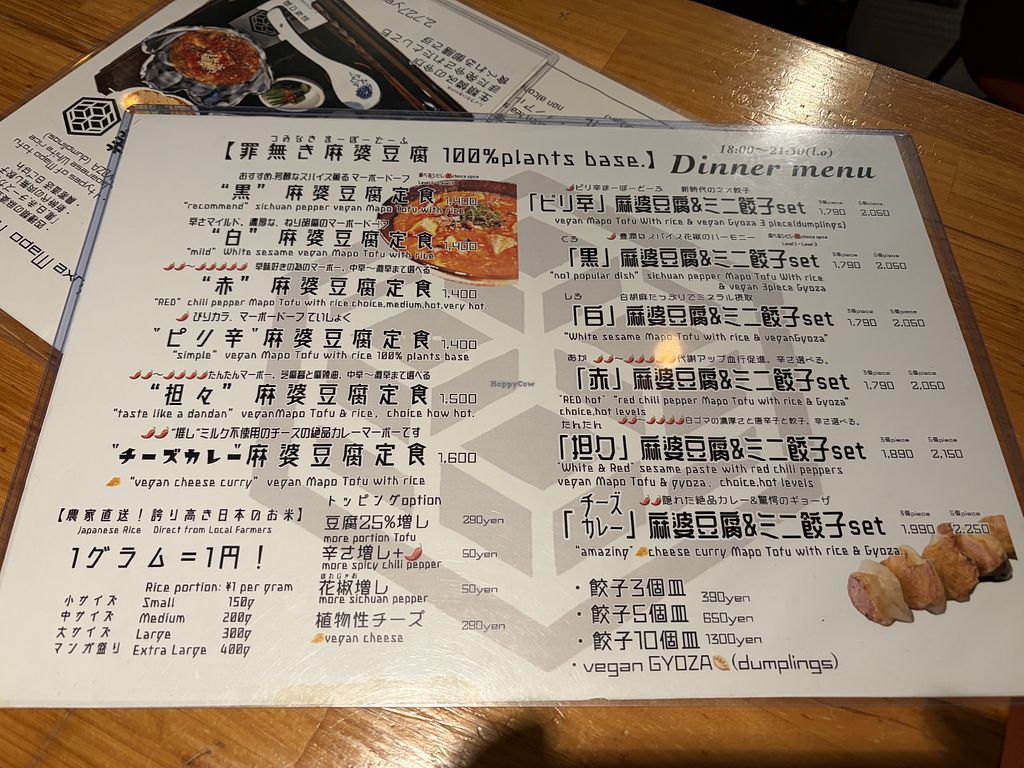 つみなきまーぼーどーふ
【罪無き麻婆豆腐 100%plants base.】
18:00~21:30(l.o)
Dinner menu
おすすめ.芳醇なスパイス薫るマーボードーフ
“黒” 麻婆豆腐定食 1,400
"recommend" sichuan pepper vegan Mapo Tofu with rice
辛さマイルド、濃厚な、ねり胡麻のマーボードーフ
“白” 麻婆豆腐定食 1,400
"mild" White sesame vegan Mapo Tofu with rice
“赤” 麻婆豆腐定食 1,400
"RED" chili pepper Mapo Tofu with rice.choice,medium,hot,very hot.
ピリカラ、マーボードーフていしょく
"ピリ辛" 麻婆豆腐定食
"simple" vegan Mapo Tofu with rice 100% plants base
“担々” 麻婆豆腐定食 1,500
"taste like a dandan" veganMapo Tofu & rice, choice how hot.
"推し"ミルク不使用のチーズの絶品カレーマーボーです
"チーズカレー"麻婆豆腐定食 1,600
"vegan cheese curry" vegan Mapo Tofu with rice
【農家直送！誇り高き日本のお米】
Japanese Rice Direct from Local Farmers
1グラム＝1円！
Rice portion: ¥1 per gram
小サイズ Small 150g
中サイズ Medium 200g
大サイズ Large 300g
マンガ盛り Extra Large 400g
トッピングoption
豆腐25%増し 290yen
more portion Tofu
辛さ増し+ 50yen
more spicy chili pepper
花椒増し 50yen
more sichuan pepper
植物性チーズ 290yen
vegan cheese
ピリ辛まーぼーどーふ 新時代のネオ餃子
「ピリ辛」麻婆豆腐&ミニ餃子set 3個piece 1,790 5個piece 2,050
vegan Mapo Tofu With rice & vegan Gyoza 3 piece(dumplings)
くろ 豊潤なスパイス花椒のハーモニー
Level 1~Level 3
「黒」麻婆豆腐&ミニ餃子set 3個piece 1,790 5個piece 2,050
"no1 popular dish" sichuan pepper Mapo Tofu With rice
& vegan 3piece Gyoza
しろ 白胡麻たっぷりでミネラル摂取
「白」麻婆豆腐&ミニ餃子set 3個piece 1,790 5個piece 2,050
"White sesame Mapo Tofu with rice & veganGyoza"
あか ~ 代謝アップ血行促進。辛さ選べる。
「赤」麻婆豆腐&ミニ餃子set 3個piece 1,790 5個piece 2,050
"RED hot" "red chili pepper Mapo Tofu with rice & Gyoza"
choice,hot levels
たんたん ~ 白ゴマの濃厚さと唐辛子と餃子、辛さ選べる。
「担々」麻婆豆腐&ミニ餃子set 3個piece 1,890 5個piece 2,150
"White & Red" sesame paste with red chili peppers
vegan Mapo Tofu & gyoza、choice,hot levels
隠れた絶品カレー&驚愕のギョーザ
「チーズカレー」麻婆豆腐&ミニ餃子set 3個piece 1,990 5個piece 2,250
"amazing" cheese curry Mapo Tofu with rice & Gyoza
・餃子3個皿 390yen
・餃子5個皿 650yen
・餃子10個皿 1300yen
・vegan GYOZA (dumplings)
HappyCow